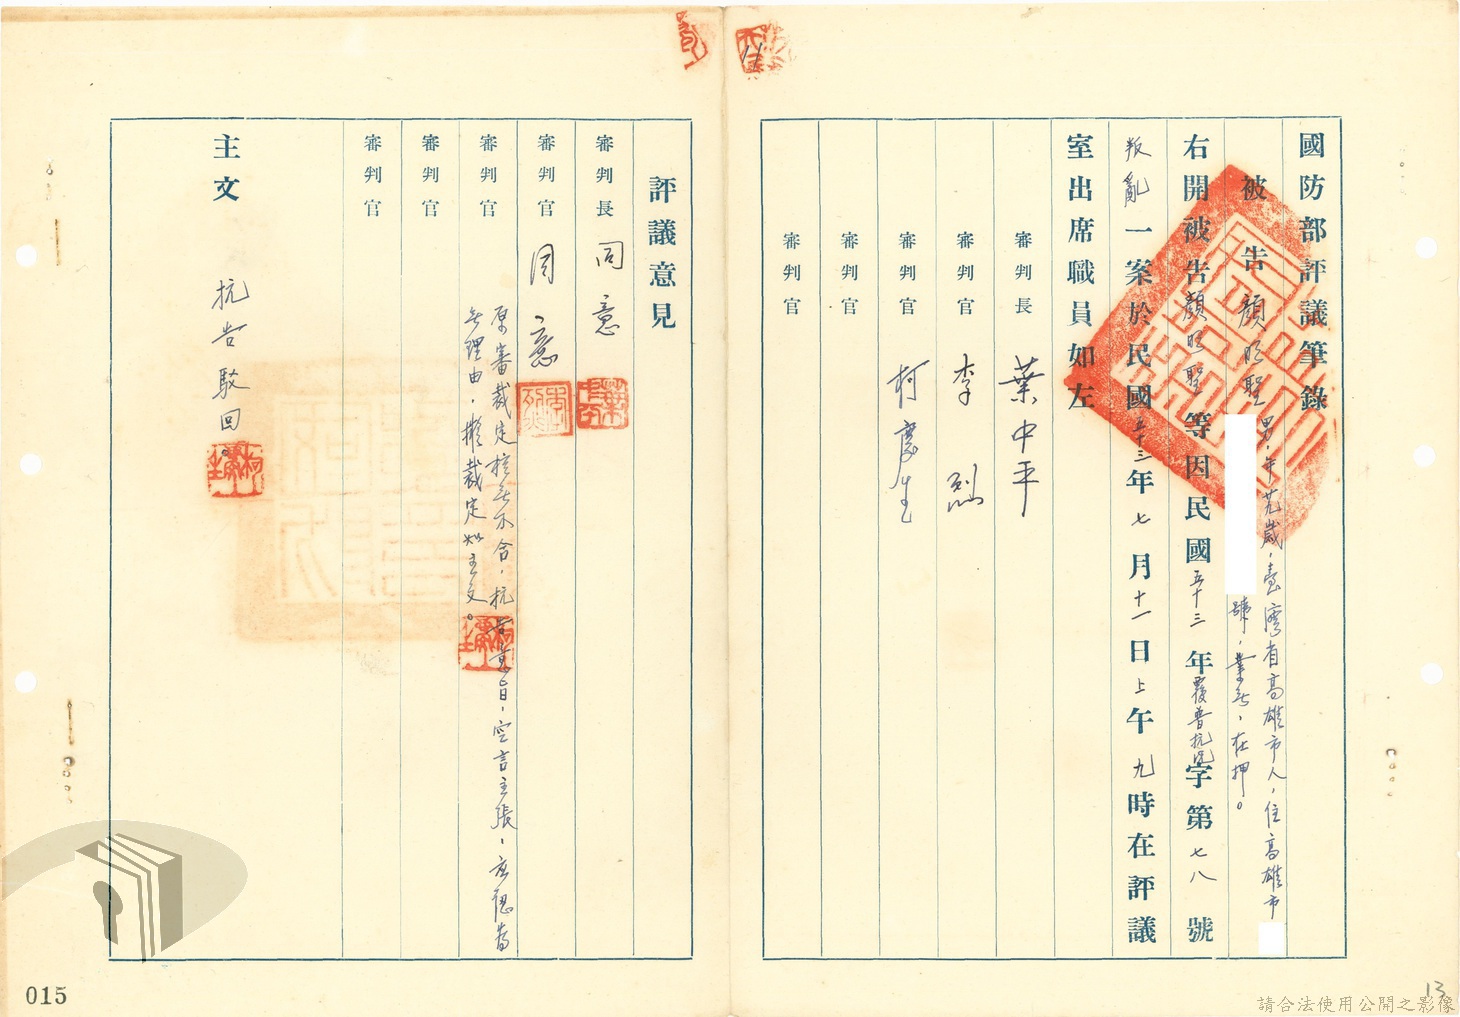 國防部評議筆錄
被告 顏旺聖 男,年廿九歲,臺灣省高雄市人,住高雄市
號,業無,在押。
右開被告顏旺聖等因民國五十三年覆普抗 字第七八號
叛亂一案於民國五十三年七月十一日上午九時在評議
室出席職員如左
審判長 葉中平
審判官 李烈
審判官 柯慶生
審判官
審判官
評議意見
審判長 同意
審判官 同意
審判官 原審裁定核無不合,抗告意旨,空言主張,應認為
無理由,擬裁定如主文。
審判官
審判官
主文 抗告駁回。
11
015
13
請合法使用公開之影像